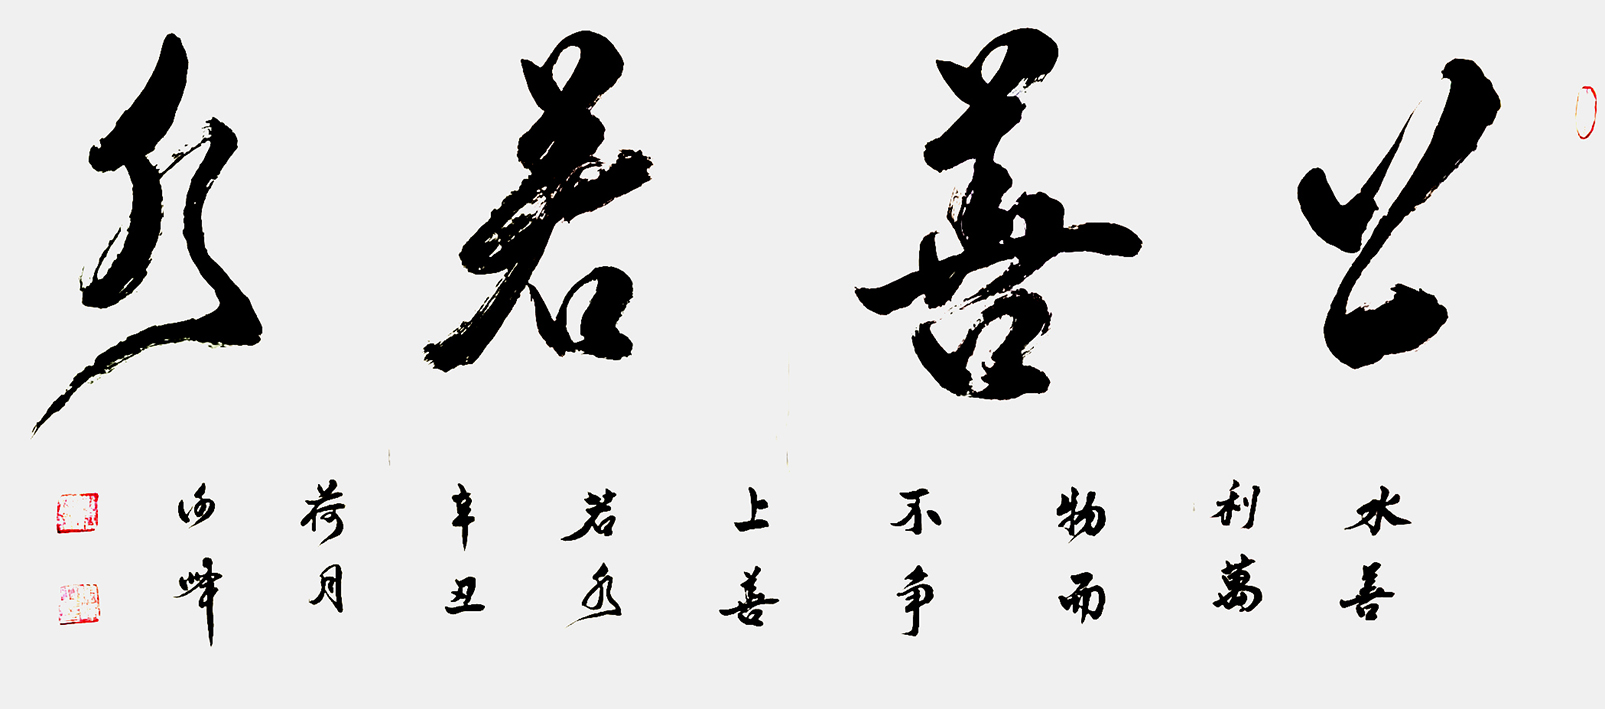 上善若水
水善
利萬
物而
不争
上善
若水
辛丑
荷月
峰